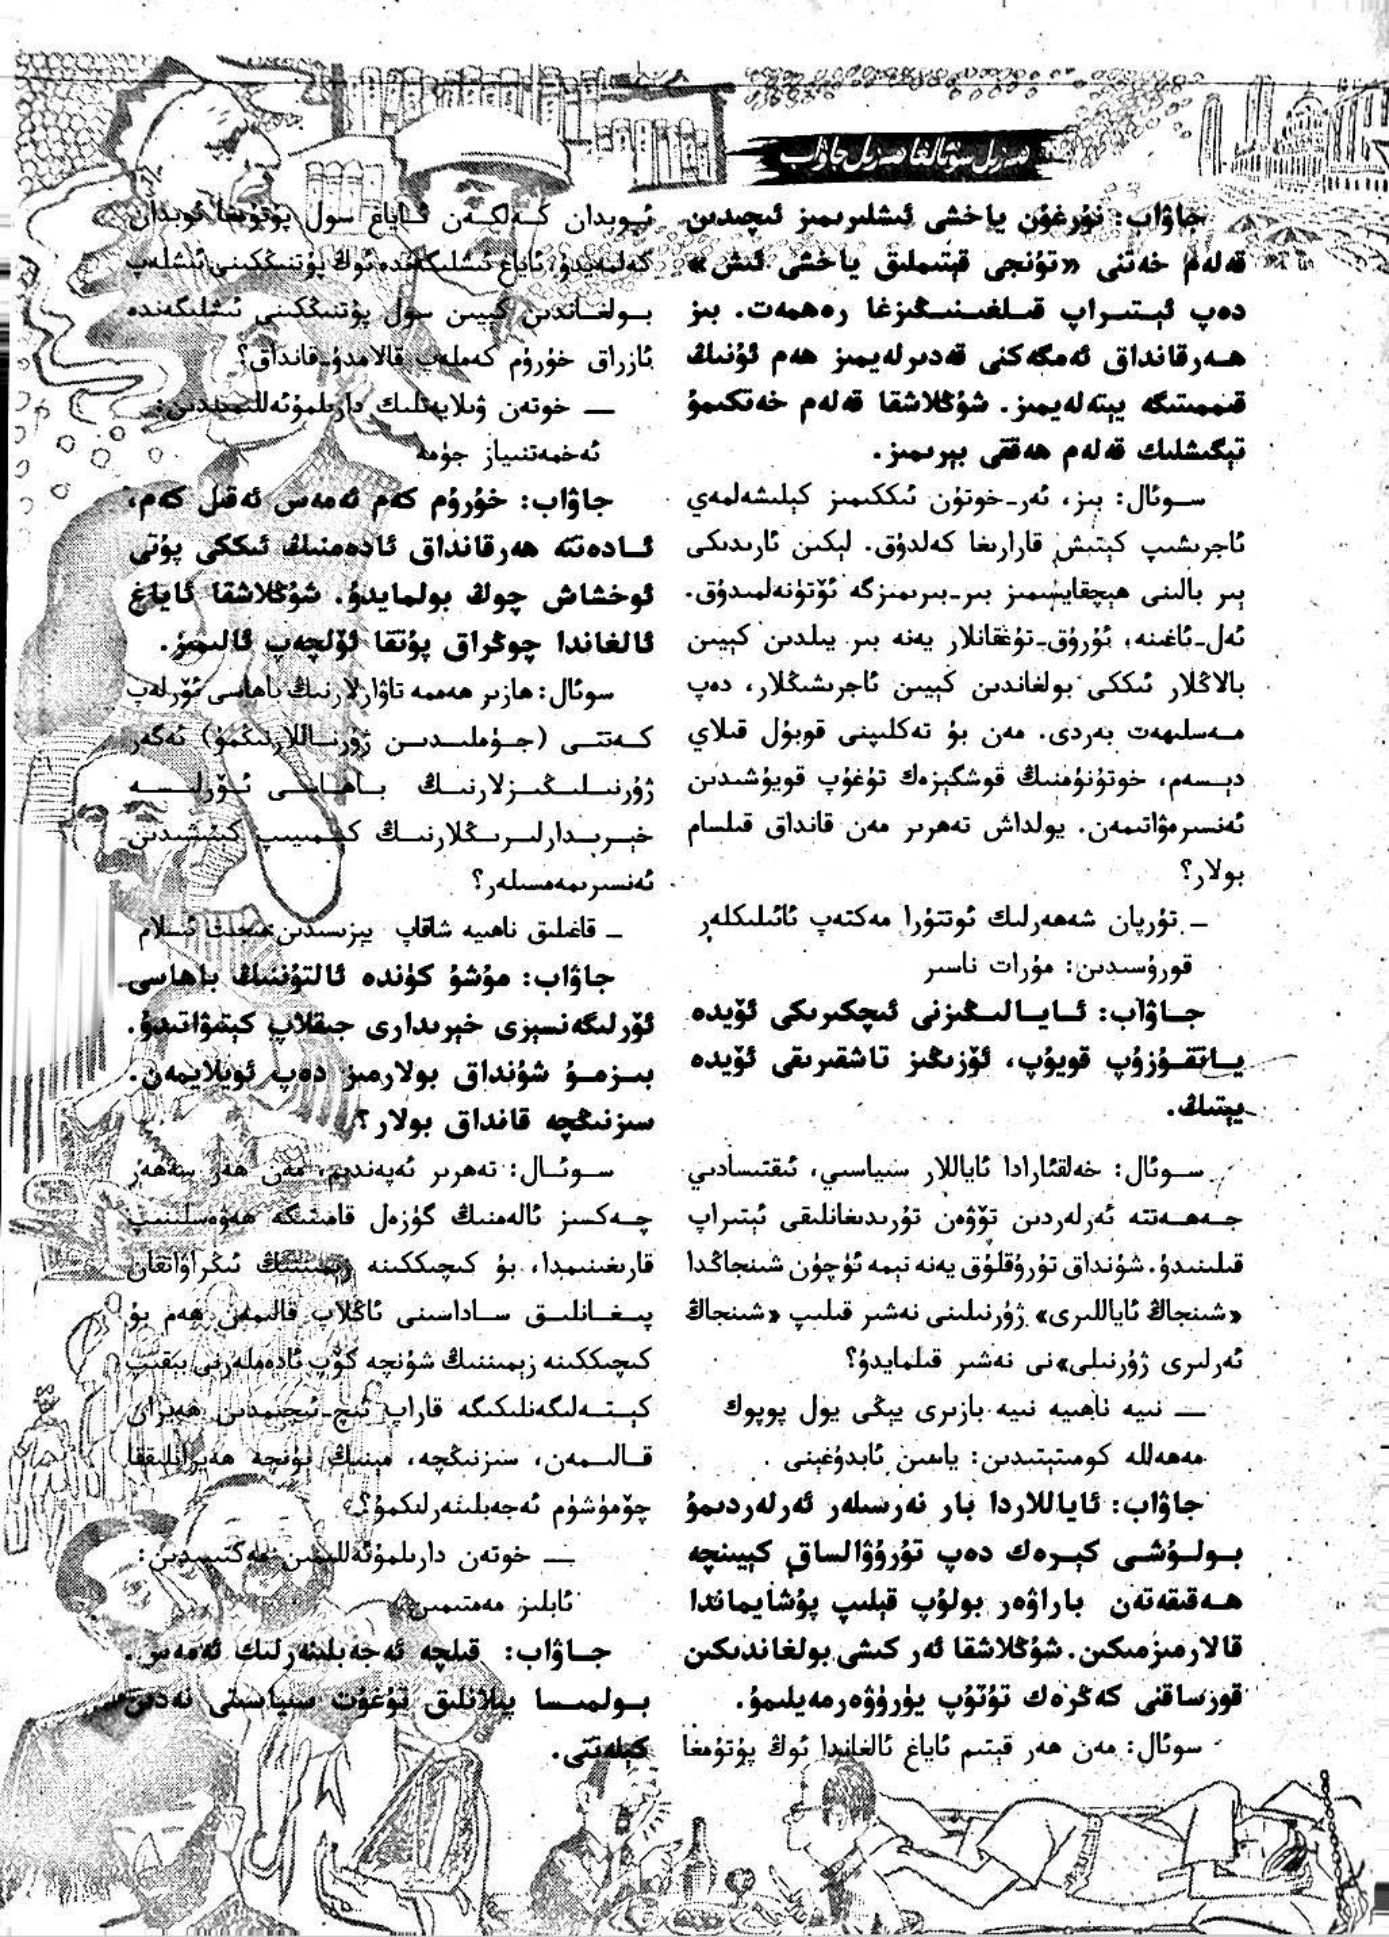 ھەزىل سوئالغا ھەزىل جاۋاب
جاۋاب: نۇرغۇن ياخشى ئىشلىرىمىز ئىچىدىن
قەلەم خەتنى «تۇنجى قېتىملىق ياخشى ئىش»
دەپ ئېتىراپ قىلغىنىڭىزغا رەھمەت. بىز
ھەرقانداق ئەمگەكنى قەدىرلەيمىز ھەم ئۇنىڭ
قىممىتىگە يېتەلەيمىز. شۇڭلاشقا قەلەم خەتكىمۇ
تېگىشلىك قەلەم ھەققى بېرىمىز.
سوئال: بىز، ئەر-خوتۇن ئىككىمىز كېلىشەلمەي
ئاجرىشىپ كېتىش قارارىغا كەلدۇق. لېكىن ئارىدىكى
بىر بالىنى ھېچقايسىمىز بىر-بىرىمىزگە ئۆتۈنەلمىدۇق.
ئەل-ئاغىنە، ئۇرۇق-تۇغقانلار يەنە بىر يىلدىن كېيىن
بالاڭلار ئىككى بولغاندىن كېيىن ئاجرىشىڭلار، دەپ
مەسلىھەت بەردى. مەن بۇ تەكلىپنى قوبۇل قىلاي
دېسەم، خوتۇنۇمنىڭ قوشگېزەك تۇغۇپ قويۇشىدىن
ئەنسىرەۋاتىمەن. يولداش تەھرىر مەن قانداق قىلسام
بولار؟
ـ تۇرپان شەھەرلىك ئوتتۇرا مەكتەپ ئائىلىكلەر
قورۇسىدىن: مۇرات ناسىر
جاۋاب: ئايالىڭىزنى ئىچكىرىكى ئۆيدە
ياتقۇزۇپ قويۇپ، ئۆزىڭىز تاشقىرىقى ئۆيدە
يېتىڭ.
سوئال: خەلقئارادا ئاياللار سىياسىي، ئىقتىسادىي
جەھەتتە ئەرلەردىن تۆۋەن تۇرىدىغانلىقى ئېتىراپ
قىلىنىدۇ. شۇنداق تۇرۇقلۇق يەنە نېمە ئۈچۈن شىنجاڭدا
«شىنجاڭ ئاياللىرى» ژۇرنىلىنى نەشىر قىلىپ «شىنجاڭ
ئەرلىرى ژۇرنىلى»نى نەشىر قىلمايدۇ؟
— نىيە ناھىيە نىيە بازىرى يېڭى يول پوپوك
مەھەللە كومىتېتىدىن: ياسىن ئابدۇغېنى
جاۋاب: ئاياللاردا بار نەرسىلەر ئەرلەردىمۇ
بولۇشى كېرەك دەپ تۇرۇۋالساق كېيىنچە
ھەقىقەتەن باراۋەر بولۇپ قېلىپ پۇشايماندا
قالارمىزمىكىن. شۇڭلاشقا ئەر كىشى بولغاندىكىن
قورساقنى كەڭرەك تۇتۇپ يۈرۈۋەرمەيلىمۇ.
سوئال: مەن ھەر قېتىم ئاياغ ئالغاندا ئوڭ پۇتۇمغا
ئوبدان كەلگەن ئاياغ سول پۇتۇمغا ئوبدان
كەلمەيدۇ، ئاياغ ئىشلىگەندە ئوڭ پۇتنىڭكىنى ئىشلەپ
بولغاندىن كېيىن سول پۇتنىڭكىنى ئىشلىگەندە
ئازراق خۇرۇم كەملەپ قالامدۇ-قانداق؟
— خوتەن ۋىلايەتلىك دارىلمۇئەللىمىندىن:
ئەخمەتنىياز جۈمە
جاۋاب: خۇرۇم كەم ئەمەس ئەقىل كەم،
ئادەتتە ھەرقانداق ئادەمنىڭ ئىككى پۇتى
ئوخشاش چوڭ بولمايدۇ. شۇڭلاشقا ئاياغ
ئالغاندا چوڭراق پۇتقا ئۆلچەپ ئالىمىز.
سوئال: ھازىر ھەممە تاۋارلارنىڭ باھاسى ئۆرلەپ
كەتتى (جۈملىدىن ژۇرناللارنىڭمۇ) ئەگەر
ژۇرنىلىڭىزلارنىڭ باھاسى ئۆرلىسە
خېرىدارلىرىڭلارنىڭ كېمىيىپ كېتىشىدىن
ئەنسىرىمەمسىلەر؟
ـ قاغىلىق ناھىيە شاقاپ يېزىسىدىن: مىجىت ئىسلام
جاۋاب: مۇشۇ كۈندە ئالتۇننىڭ باھاسى
ئۆرلىگەنسېزى خېرىدارى جىقلاپ كېتىۋاتىدۇ.
بىزمۇ شۇنداق بولارمىز دەپ ئويلايمەن.
سىزنىڭچە قانداق بولار؟
سوئال: تەھرىر ئەپەندىم، مەن ھەر سەھەر
چەكسىز ئالەمنىڭ گۈزەل قامىتىگە ھەۋەسلىنىپ
قارىغىنىمدا، بۇ كىچىككىنە زېمىننىڭ ئىڭراۋاتقان
يىغانلىق ساداسىنى ئاڭلاپ قالىمەن ھەم بۇ
كىچىككىنە زېمىننىڭ شۇنچە كۆپ ئادەملەرنى بېقىپ
كېتەلىگەنلىكىگە قاراپ ئىچ-ئىچىمدىن ھەيران
قالىمەن، سىزنىڭچە، مېنىڭ بۇنچە ھەيرانلىققا
چۆمۈشۈم ئەجەبلىنەرلىكمۇ؟
— خوتەن دارىلمۇئەللىمىن مەكتىپىدىن:
ئابلىز مەمتىمىن
جاۋاب: قىلچە ئەجەبلىنەرلىك ئەمەس.
بولمىسا پىلانلىق تۇغۇت سىياسىتى نەدىن
كېلەتتى.